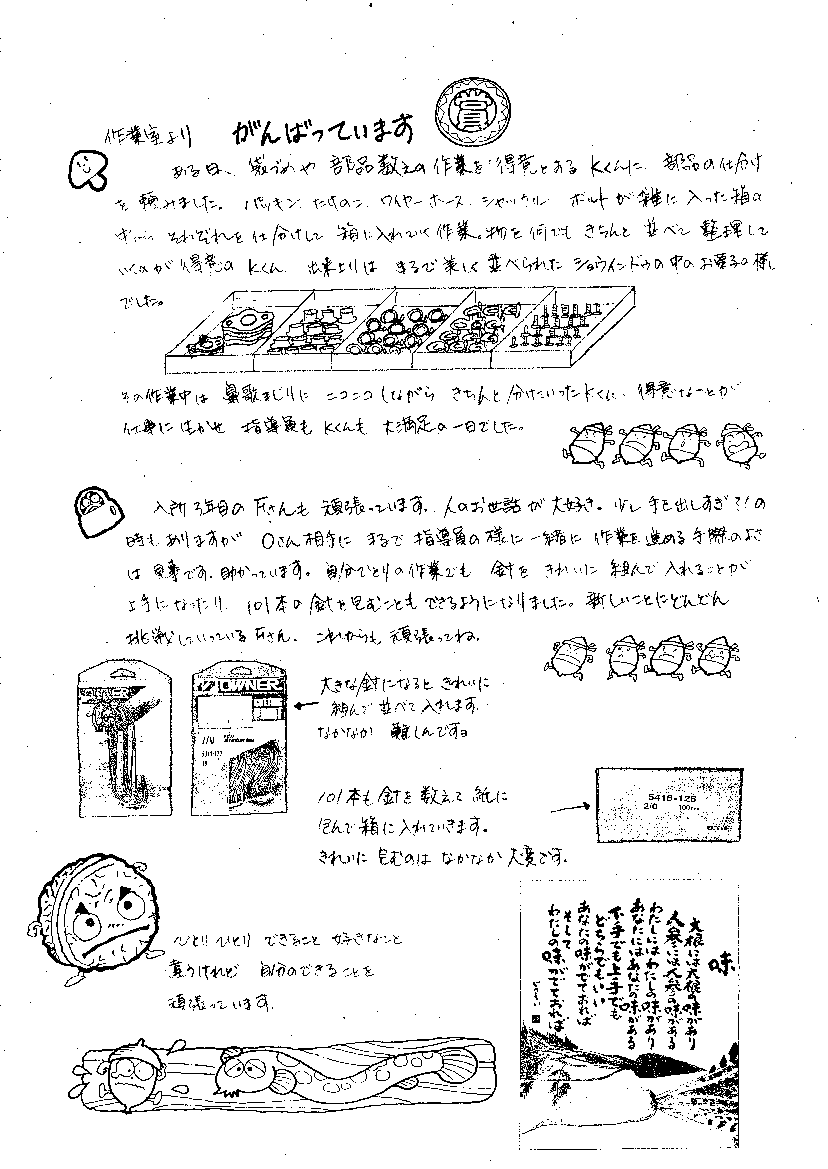 作業室より がんばっています
賞
ある日、袋づめや 部品数えの 作業を 得意とする Kくんに、部品の仕分け
を 頼みました。パッキン、たけのこ、ワイヤーホース、シャックル、ボルトが 雑に 入った箱の
それぞれを 仕分けして 箱に入れていく作業。物を何でも きちんと 並べて 整理して
いくのが 得意の Kくん、出来上りは まるで 美しく 並べられた ショウインドウの 中の お菓子の様
でした。
その作業中は 鼻歌まじりに ニコニコしながら きちんと 分けていったKくん、得意なことが
仕事に 生かせ 指導員も Kくんも 大満足の一日でした。
入所3年目の Fさんも 頑張っています。人のお世話が 大好き。少し 手を出しすぎ?!の
時も ありますが Oさん相手に まるで 指導員の様に 一緒に 作業を 進める 手際のよさ
は 見事です。助かっています。自分ひとりの作業でも 針を きれいに 組んで 入れることが
上手になったり、101本の針を包むことも できるようになりました。新しいことにどんどん
挑戦していっている Fさん、これからも 頑張ってね。
OWNER
OWNER
大きな針になると きれいに
組んで 並べて 入れます。
なかなか 難しいんですョ
101本も 針を 数えて 紙に
包んで 箱に 入れていきます。
きれいに 包むのは なかなか 大変です。
5416-126
2/0
ひとりひとり できること 好きなこと
違うけれど 自分のできることを
頑張っています。
味
大根には大根の味があり
人参には人参の味がある
わたしにはわたしの味があり
あなたにはあなたの味がある
下手でも上手でも
どちらでもいい
あなたの味がでておれば
そして
わたしの味がでておれば